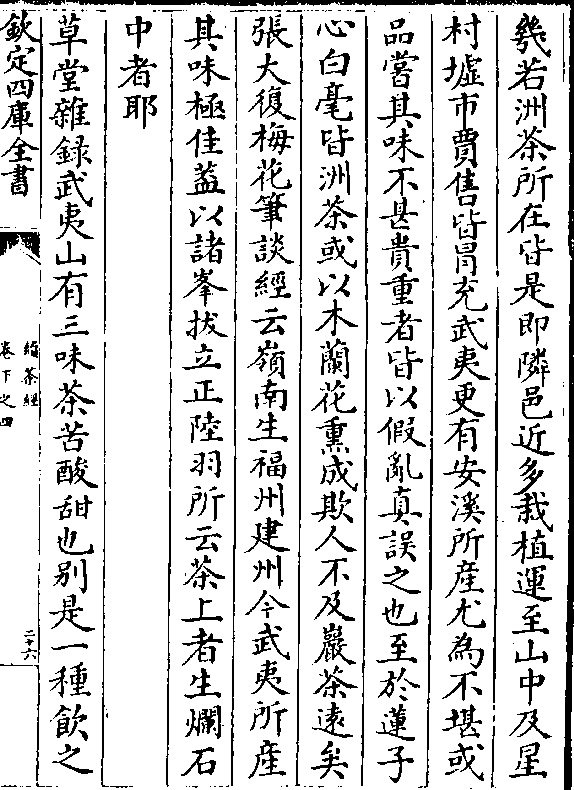 幾若洲茶所在皆是即隣邑近多栽植運至山中及星
村墟市賈售皆冒充武夷更有安溪所産尤為不堪或
品嘗其味不甚貴重者皆以假亂真誤之也至於蓮子
心白毫皆洲茶或以木蘭花熏成欺人不及巖茶逺矣
張大復梅花筆談經云嶺南生福州建州今武夷所産
其味極佳葢以諸峯拔立正陸羽所云茶上者生爛石
中者耶
草堂雜録武夷山有三味茶苦酸甜也别是一種飲之
欽定四庫全書
續茶經
卷下之四
二十六